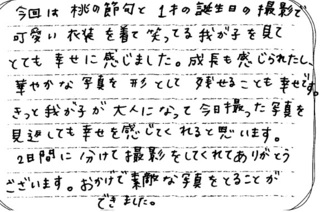 今回は桃の節句と1才の誕生日の撮影で
可愛い衣装を着て笑ってる我が子を見て
とても幸せに感じました。成長も感じられたし、
華やかな写真を形として残せることも幸せです。
きっと我が子が大人になって今日撮った写真を
見返しても幸せを感じてくれると思います。
2日間に分けて撮影をしてくれてありがとう
ございます。おかげで素敵な写真をとることが
できました。